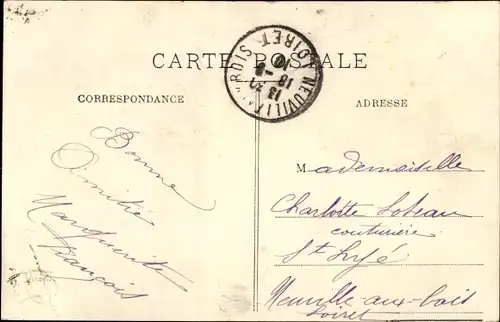 CARTE POSTALE
CORRESPONDANCE
ADRESSE
NEUVILLE BOIS
LOIRET
13
18
Bonne
Amitié
Marguerite
François
Mademoiselle
Charlotte Loteau
couturière
St Lyé
Neuville aux-bois
Loiret